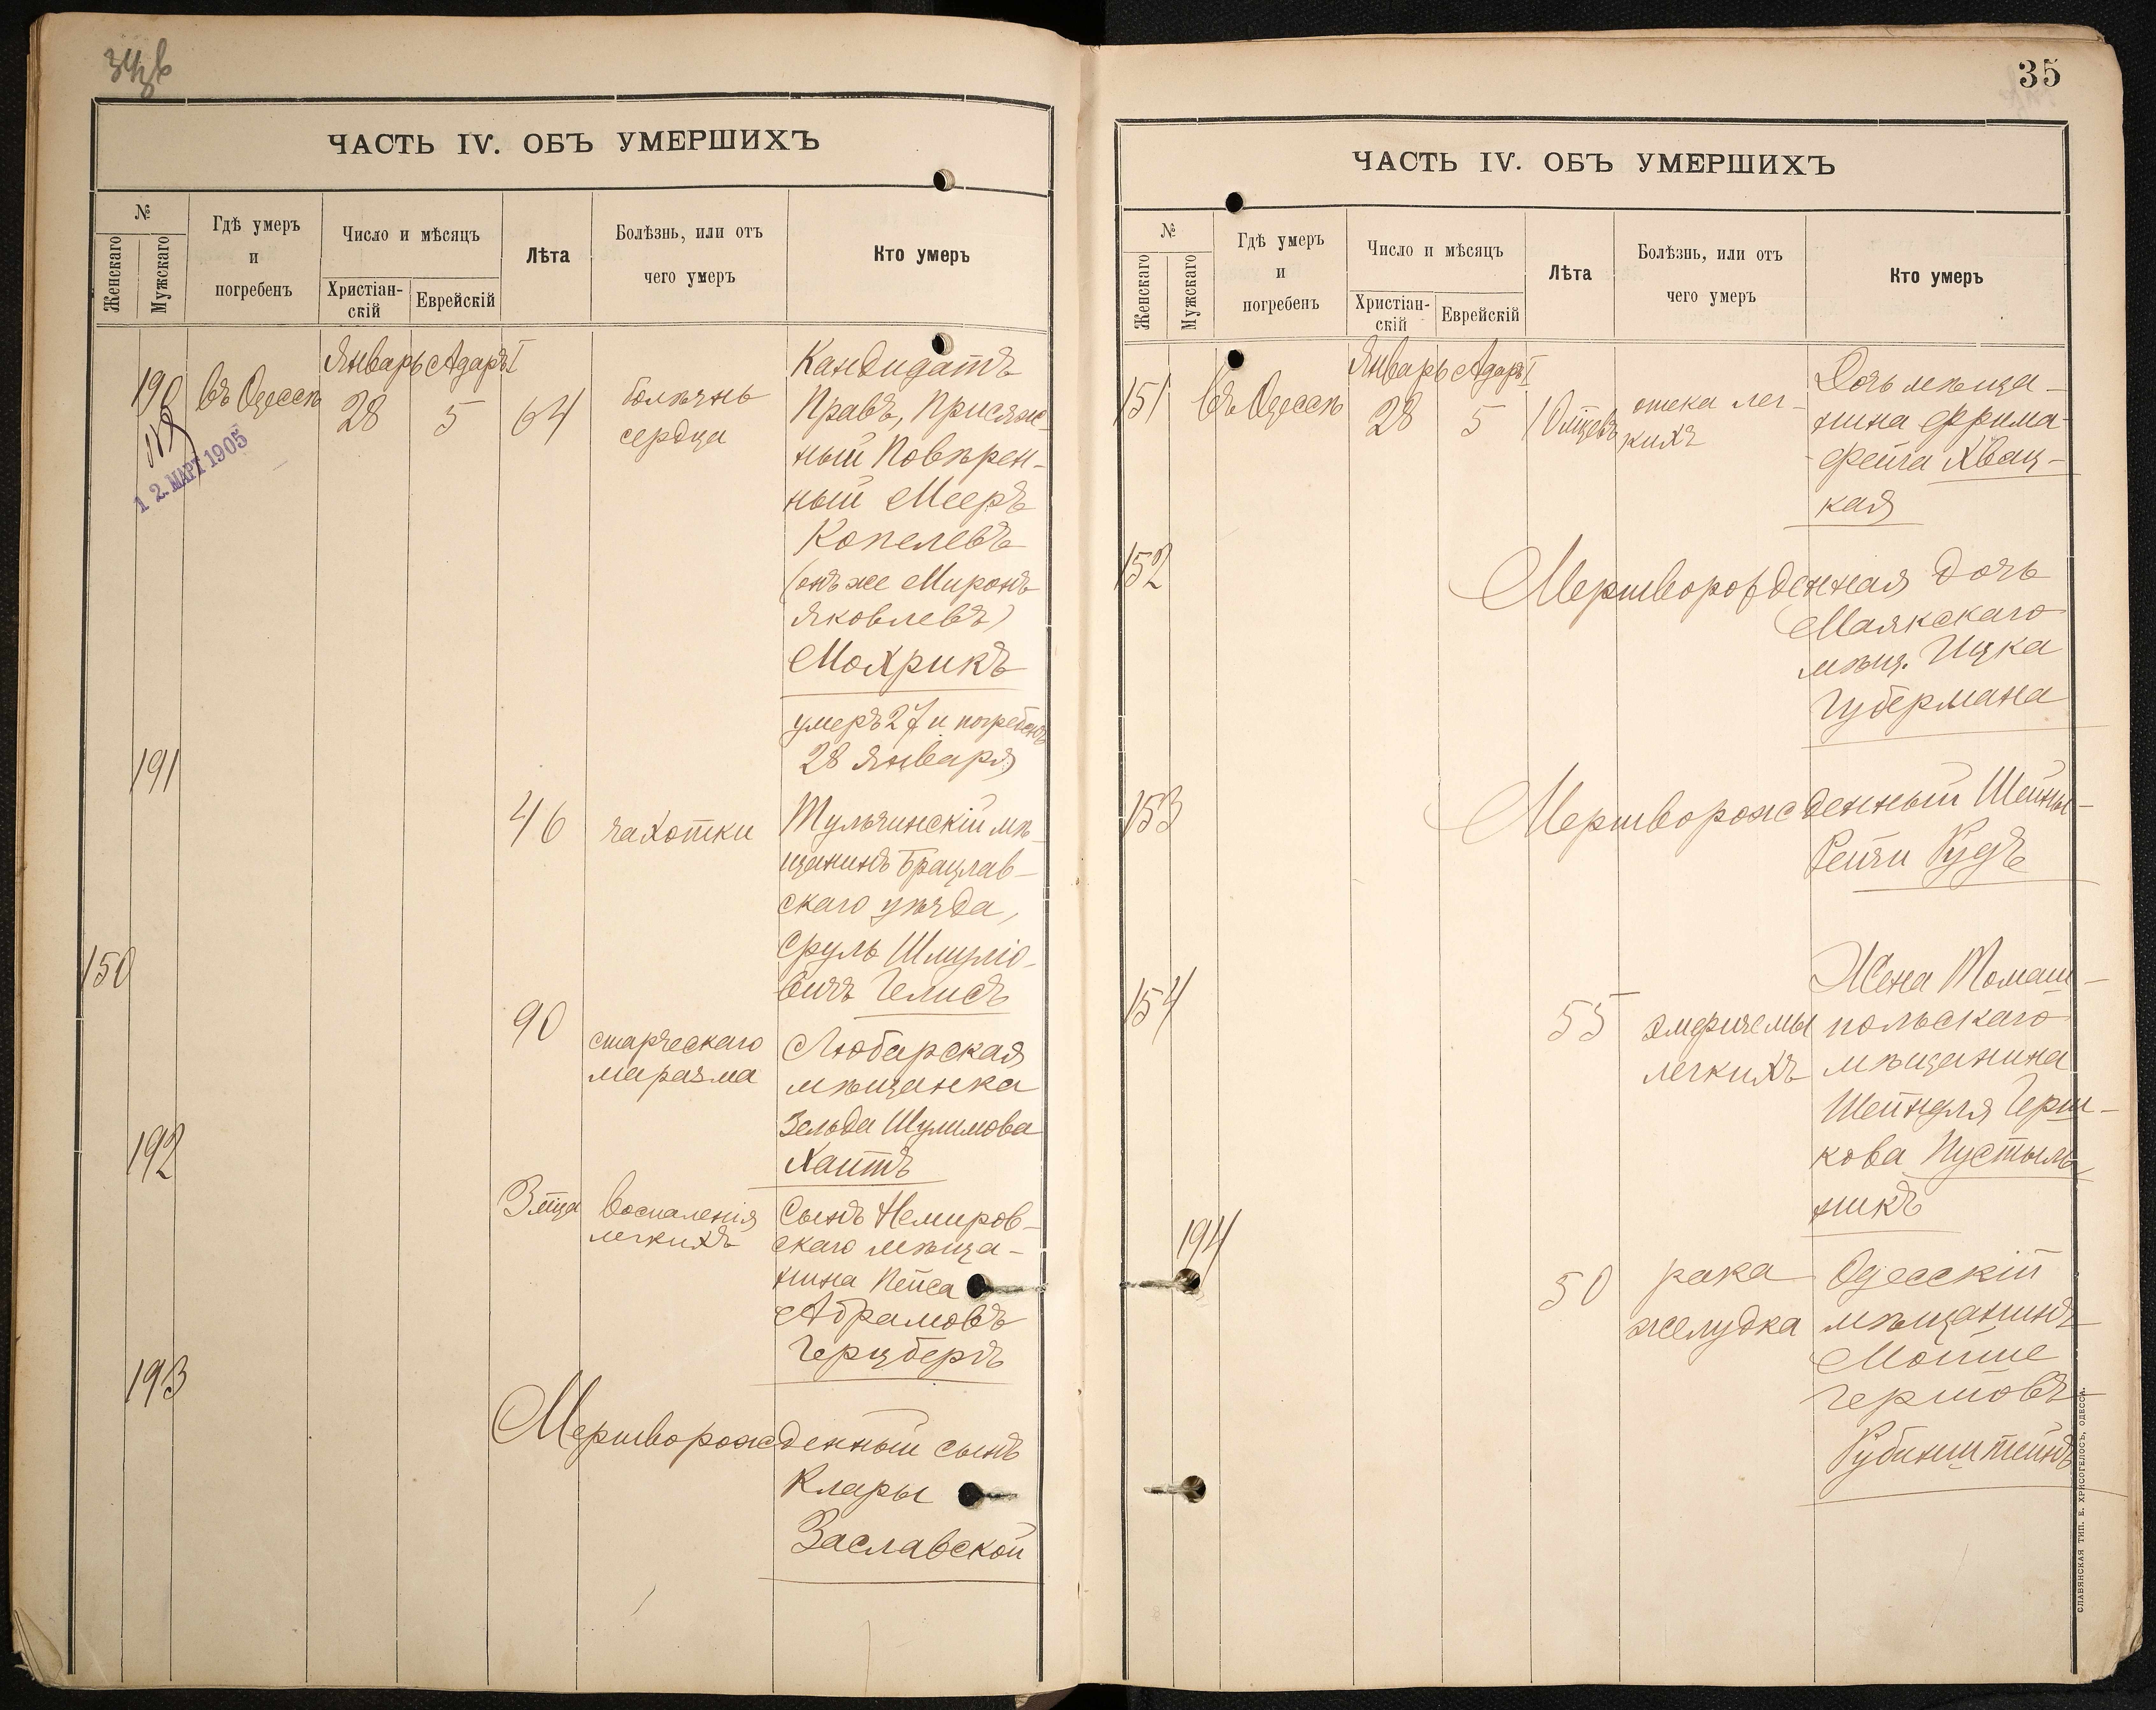 34 об
ЧАСТЬ IV. ОБЪ УМЕРШИХЪ
№
Женскаго
Мужскаго
Гдѣ умеръ
и
погребенъ
Число и мѣсяцъ
Христіан-
скій
Еврейскій
Лѣта
Болѣзнь, или отъ
чего умеръ
Кто умеръ
Январь Адаръ I
190 въ Одессѣ 28 5 64
12. МАРТ 1905
болѣзнь
сердца
Кандидатъ
Правъ, Присяж-
ный Повѣрен-
ный Мееръ
Копелевъ
(онъ же Миронъ
Яковлевъ)
Мохрикъ
умеръ 27 и погребенъ
28 Января
191
46 чахотки
Тульчинскій мѣ-
щанинъ Брацлав-
скаго уѣзда,
Сруль Шлиомо-
вичъ Гелисъ
150
90
старческаго
маразма
Любарская
мѣщанка
Зельда Шулимова
Хаитъ
192
3 м-ца
воспаленія
легкихъ
Сынъ Немиров-
скаго мѣща-
нина Пейса
Абрамовъ
Герцбергъ
193
Мертворожденный сынъ
Клары
Заславской
35
ЧАСТЬ IV. ОБЪ УМЕРШИХЪ
№
Женскаго
Мужскаго
Гдѣ умеръ
и
погребенъ
Число и мѣсяцъ
Христіан-
скій
Еврейскій
Лѣта
Болѣзнь, или отъ
чего умеръ
Кто умеръ
Январь Адаръ I
151 въ Одессѣ 28 5 10 м-цевъ
отека лег-
кихъ
Дочь мѣща-
нина Фрима-
Фейга Хвац-
кая
152
Мертворожденная дочь
Маякскаго
мѣщ. Ицка
Губермана
153
Мертворожденный Шейны-
Рейзи Рудъ
154
55
эмфиземы
легкихъ
Жена Томаш-
польскаго
мѣщанина
Шейндля Герш-
кова Пустыль-
никъ
194
50
рака
желудка
Одесскій
мѣщанинъ
Мойше
Гершовъ
Рубинштейнъ
СЛАВЯНСКАЯ ТИП. Е. ХРИСОГЕЛОСЪ, ОДЕССА.